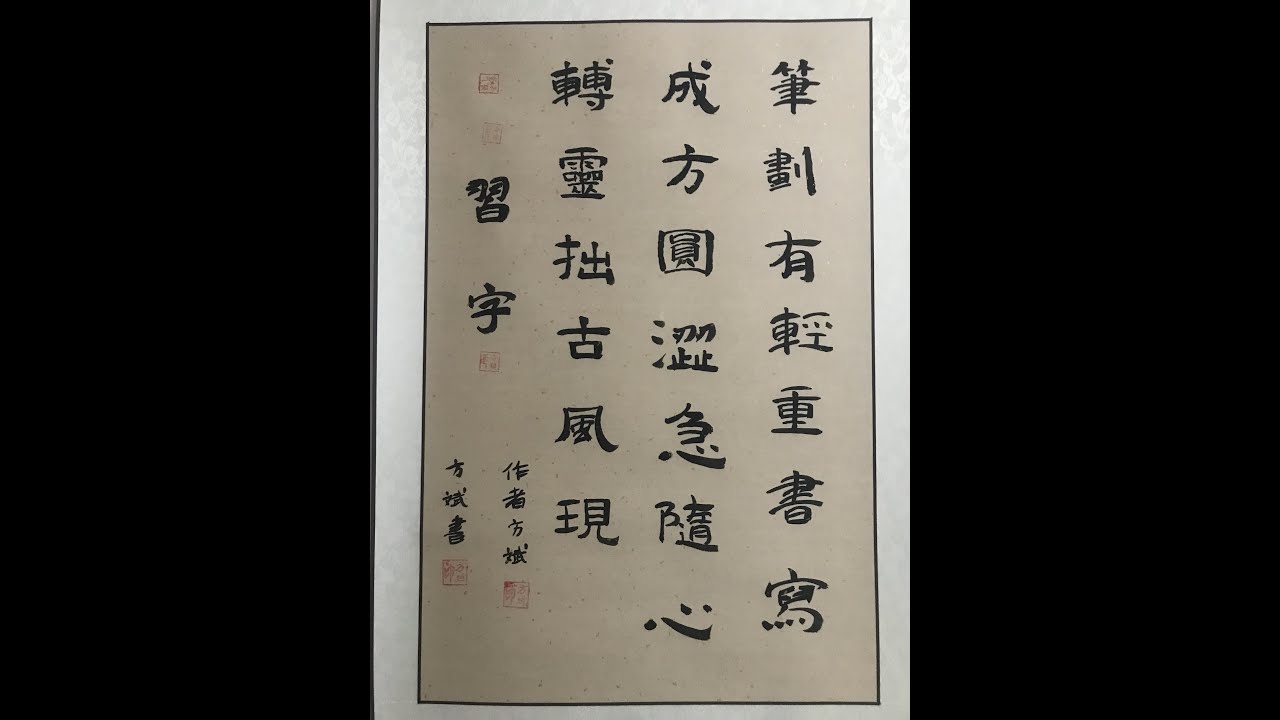 筆劃有輕重書寫
成方圓澀急隨心
轉靈拙古風現
習字
作者方斌
方斌書